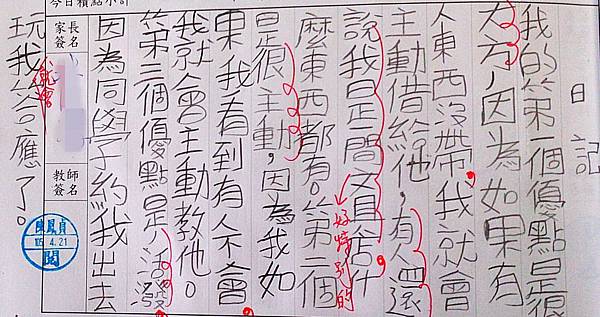 日記
我的第一個優點是很
大方，因為如果有
人東西沒帶，我就會
主動借給他，有人還
說我是一間文具舍什
麼東西都有。第二個
好特別的
是很主動，因為我如
果我有到有人不會
我就會主動教他。
第三個優點是活潑
因為同學約我出去
今日積點小計
家長簽名
教師簽名
陳鳳貞
105.4.21
閱
玩我答應了。
就會